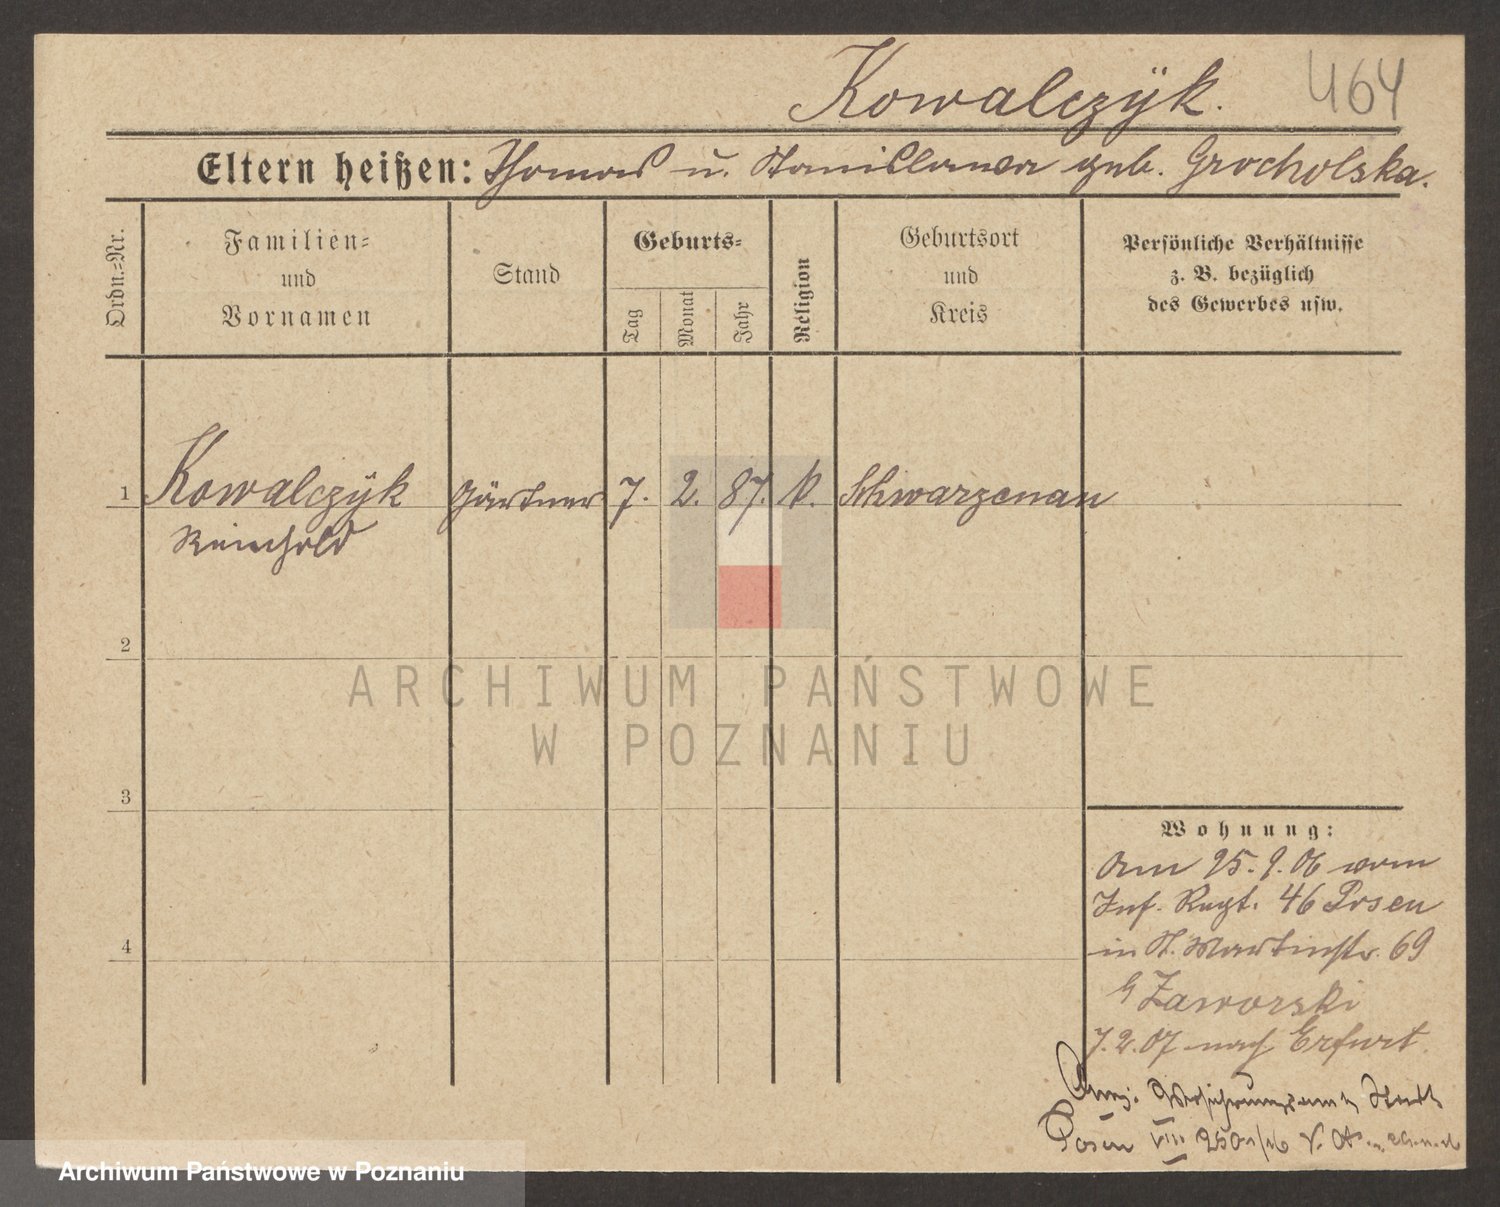 Kowalczÿk. 464
Eltern heißen: Thomas u. Stanislawa geb. Grocholska.
Ordn.=Nr.
Familien=
und
Vornamen
Stand
Geburts=
Tag
Monat
Jahr
Religion
Geburtsort
und
Kreis
Persönliche Verhältnisse
z. B. bezüglich
des Gewerbes usw.
1 Kowalczÿk Gärtner 7. 2. 87. k. Schwarzenau
Reinhold
2
3
4
Wohnung:
Am 25.9.06 vom
Inf. Regt. 46 Posen
in St. Martinstr. 69
b/ Zaworski
7.2.07 nach Erfurt.
Anz: Versicherungsamt Stadt
Posen VIII
ARCHIWUM PAŃSTWOWE
W POZNANIU
Archiwum Państwowe w Poznaniu